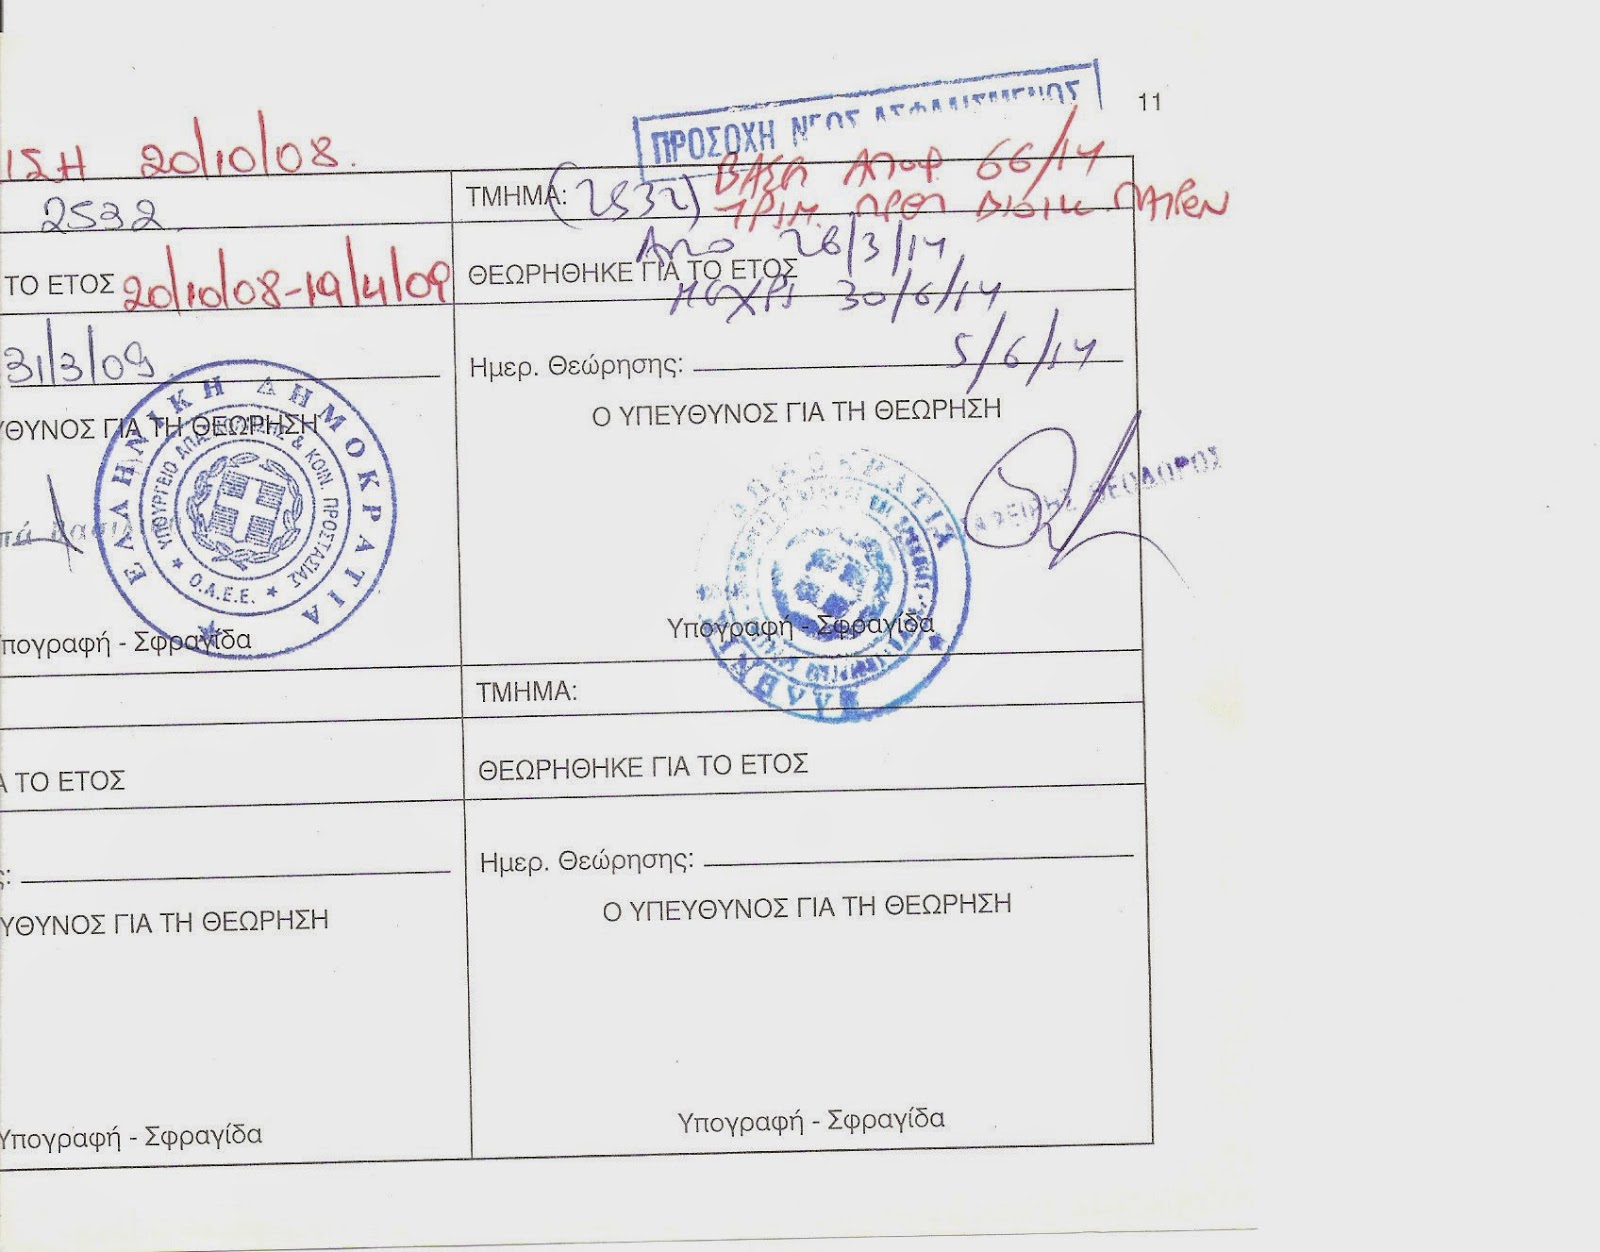 11
ΠΡΟΣΟΧΗ ΝΕΟΣ ΑΣΦΑΛΙΣΜΕΝΟΣ
ΙΣΗ 20/10/08.
2532
ΤΟ ΕΤΟΣ 20/10/08-19/4/09
31/3/09
ΥΘΥΝΟΣ ΓΙΑ ΤΗ ΘΕΩΡΗΣΗ
ΕΛΛΗΝΙΚΗ ΔΗΜΟΚΡΑΤΙΑ
ΥΠΟΥΡΓΕΙΟ ΑΠΑΣΧΟΛΗΣΗΣ & ΚΟΙΝ. ΠΡΟΣΤΑΣΙΑΣ
Ο.Α.Ε.Ε.
πογραφή - Σφραγίδα
ΒΑΣΗ ΑΠΟΦ 66/14
ΤΡΙΜ. ΠΡΩΤ ΔΙΟΙΚ
ΤΜΗΜΑ: (2532)
ΑΠΟ 26/3/14
ΘΕΩΡΗΘΗΚΕ ΓΙΑ ΤΟ ΕΤΟΣ
ΜΕΧΡΙ 30/6/14
Ημερ. Θεώρησης: 5/6/14
Ο ΥΠΕΥΘΥΝΟΣ ΓΙΑ ΤΗ ΘΕΩΡΗΣΗ
ΘΕΟΔΩΡΟΣ
Υπογραφή - Σφραγίδα
Α ΤΟ ΕΤΟΣ
ς:
ΥΘΥΝΟΣ ΓΙΑ ΤΗ ΘΕΩΡΗΣΗ
Υπογραφή - Σφραγίδα
ΤΜΗΜΑ:
ΘΕΩΡΗΘΗΚΕ ΓΙΑ ΤΟ ΕΤΟΣ
Ημερ. Θεώρησης:
Ο ΥΠΕΥΘΥΝΟΣ ΓΙΑ ΤΗ ΘΕΩΡΗΣΗ
Υπογραφή - Σφραγίδα